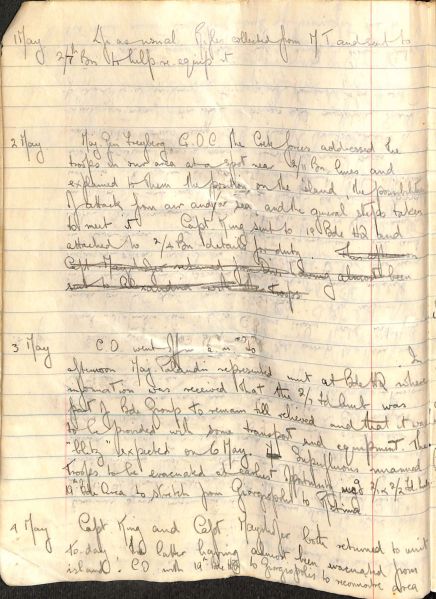 1 May as usual. Rifles collected from M T and sent to
2/7th Bn to help re equip it
2 May Maj Gen Freyberg G.O.C. the Crete forces addressed the
troops in our area at a spot near 2/11 Bn lines and
explained to them the position on the island the possibilities
of attack from air and/or sea and the general steps taken
to meet it Capt King sent to 19 Bde HQ and
attached to 2/4 Bn details for duty.
Capt having almost been
sent to Alexandria with the troops
3 May CO went In
afternoon Maj represented unit at Bde HQ where
information was received that the 2/3 Fd was
part of Bde Group to remain till relieved and that it was
to be provided with some transport and equipment The
"blitz" expected on 6 May. Superfluous unarmed
troops to be evacuated at earliest
19th Bde Area to stretch from Georgeopolis to Retimo
4 May Capt King and Capt both returned to unit
to-day the latter having almost been evacuated from
island. CO with 19th Bde HQ to Georgeopolis to reconnoitre area